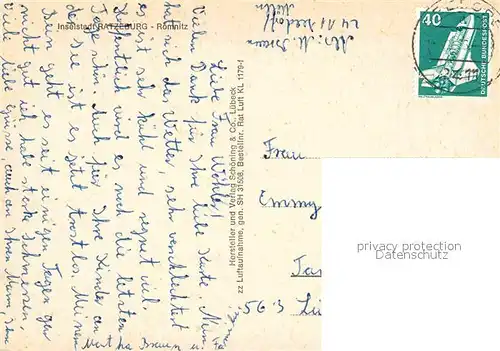 Inselstadt RATZEBURG - Römnitz
Liebe Frau Wöhler!
Vielen Dank für Ihre liebe Karte. Nun
hat sich das Wetter sehr verschlechtert
es ist sehr kühl und regnet viel,
hoffentlich wird es noch die letzten
Tage schön. Auch für Ihre Kinder, an
der See ist es jetzt trostlos. Meinem
Bein geht es seit einigen Tagen gar
nicht gut ich habe starke Schmerzen.
Viele liebe Grüsse, auch an Ihren Mann, Ihre
Martha Braun u.
Hersteller und Verlag Schöning & Co., Lübeck
zz Luftaufnahme, gen. SH 31508, Bestellnr. Rat Luft KL 1179-f
Abs. M. Braun
2411 Seedorf
40
DEUTSCHE BUNDESPOST
Frau
Emmy
privacy protection
Datenschutz
563